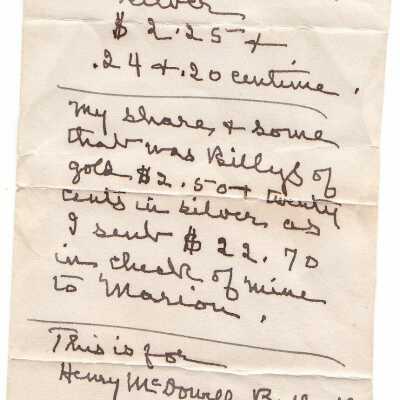 silver
$ 2.25 +
.24 + .20 centime.
My share, + some
that was Billys of
gold $2.50 + twenty
cents in silver, as
I sent $ 22.70
in check of mine
to Marion.
This is for
Henry McDowell